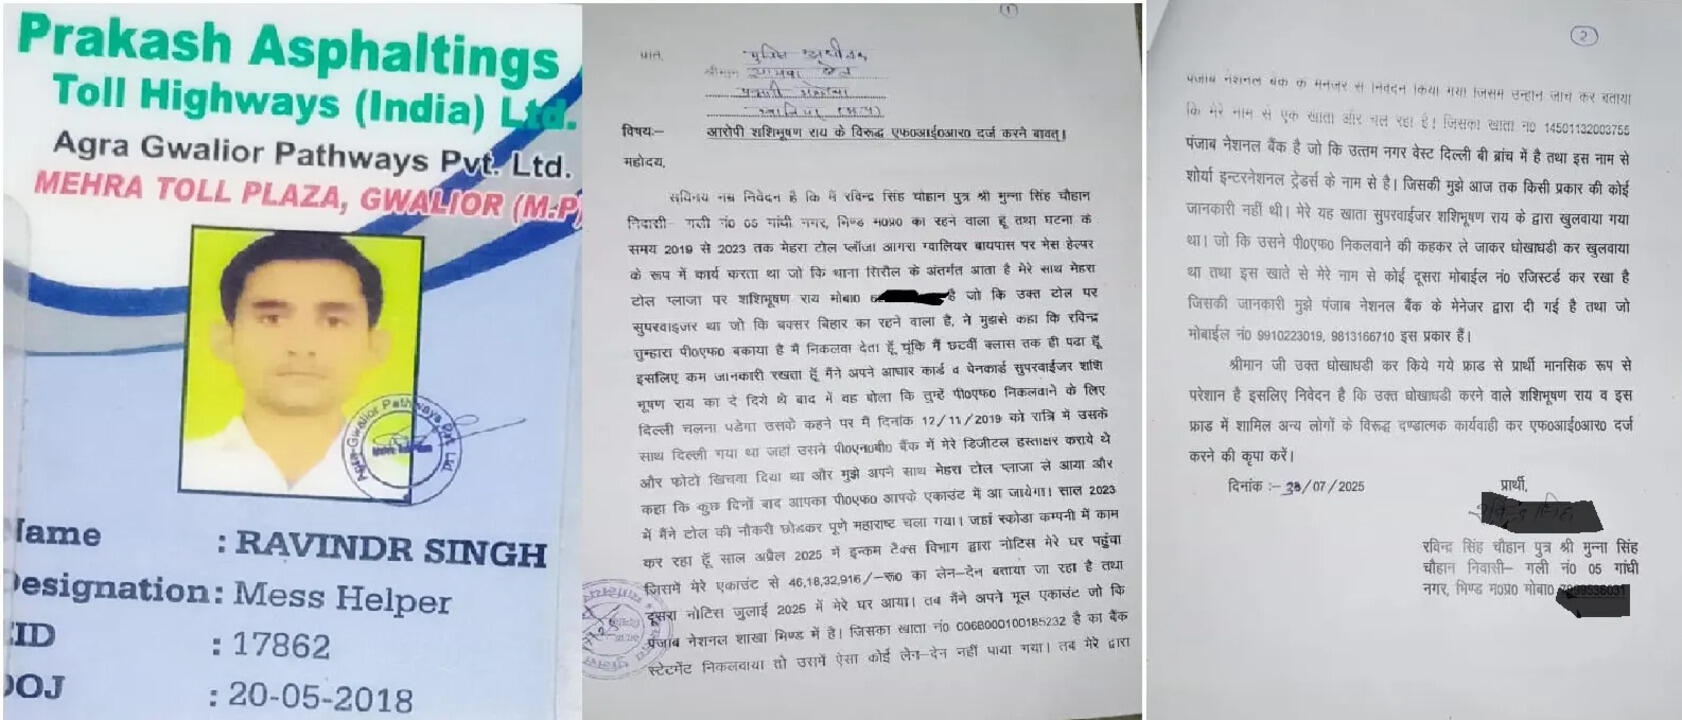 Prakash Asphaltings
Toll Highways (India) Ltd.
Agra Gwalior Pathways Pvt. Ltd.
MEHRA TOLL PLAZA, GWALIOR (M.P)
Agra-Gwalior Pathways Pvt. Ltd.
Name : RAVINDR SINGH
Designation : Mess Helper
ID : 17862
DOJ : 20-05-2018
1
प्रति,
पुलिस अधीक्षक
श्रीमान
विषय:— आरोपी शशिभूषण राय के विरूद्ध एफ0आई0आर0 दर्ज करने बावत्।
महोदय,
सविनय नम्र निवेदन है कि मैं रविन्द्र सिंह चौहान पुत्र श्री मुन्ना सिंह चौहान
निवासी— गली नं0 05 गांधी नगर, भिण्ड म0प्र0 का रहने वाला हूँ तथा घटना के
समय 2019 से 2023 तक मेहरा टोल प्लॉजा आगरा ग्वालियर बायपास पर मेस हेल्पर
के रूप में कार्य करता था जो कि थाना सिरौल के अंतर्गत आता है मेरे साथ मेहरा
टोल प्लाजा पर शशिभूषण राय मोबा0 है जो कि उक्त टोल पर
सुपरवाइजर था जो कि बक्सर बिहार का रहने वाला है, ने मुझसे कहा कि रविन्द्र
तुम्हारा पी0एफ0 बकाया है मैं निकलवा देता हूँ चूंकि मैं छटवीं क्लास तक ही पढा हूँ
इसलिए कम जानकारी रखता हूँ मैंने अपने आधार कार्ड व पेनकार्ड सुपरवाईजर शशि
भूषण राय का दे दिये थे बाद में वह बोला कि तुम्हें पी0एफ0 निकलवाने के लिए
दिल्ली चलना पडेगा उसके कहने पर मैं दिनांक 12/11/2019 को रात्रि में उसके
साथ दिल्ली गया था जहां उसने पी0एन0बी0 बैंक में मेरे डिजीटल हस्ताक्षर कराये थे
और फोटो खिचवा दिया था और मुझे अपने साथ मेहरा टोल प्लाजा ले आया और
कहा कि कुछ दिनों बाद आपका पी0एफ0 आपके एकाउंट में आ जायेगा। साल 2023
में मैंने टोल की नौकरी छोडकर पूणे महाराष्ट चला गया। जहां स्कोडा कम्पनी में काम
कर रहा हूँ साल अप्रैल 2025 में इन्कम टैक्स विभाग द्वारा नोटिस मेरे घर पहुंचा
जिसमें मेरे एकाउंट से 46,18,32,916/—रू0 का लेन—देन बताया जा रहा है तथा
दूसरा नोटिस जुलाई 2025 में मेरे घर आया। तब मैंने अपने मूल एकाउंट जो कि
पंजाब नेशनल शाखा भिण्ड में है। जिसका खाता नं0 0068000100185232 है का बैंक
स्टेटमेंट निकलवाया तो उसमें ऐसा कोई लेन—देन नहीं पाया गया। तब मेरे द्वारा
2
पंजाब नेशनल बैंक के मैनेजर से निवेदन किया गया जिसमें उन्होंने जांच कर बताया
कि मेरे नाम से एक खाता और चल रहा है। जिसका खाता नं0 14501132003755
पंजाब नेशनल बैंक है जो कि उत्तम नगर वेस्ट दिल्ली बी ब्रांच में है तथा इस नाम से
शोर्या इन्टरनेशनल ट्रेडर्स के नाम से है। जिसकी मुझे आज तक किसी प्रकार की कोई
जानकारी नहीं थी। मेरे यह खाता सुपरवाईजर शशिभूषण राय के द्वारा खुलवाया गया
था। जो कि उसने पी0एफ0 निकलवाने की कहकर ले जाकर धोखाधडी कर खुलवाया
था तथा इस खाते से मेरे नाम से कोई दूसरा मोबाईल नं0 रजिस्टर्ड कर रखा है
जिसकी जानकारी मुझे पंजाब नेशनल बैंक के मेनेजर द्वारा दी गई है तथा जो
मोबाईल नं0 9910223019, 9813166710 इस प्रकार हैं।
श्रीमान जी उक्त धोखाधडी कर किये गये फ्राड से प्रार्थी मानसिक रूप से
परेशान है इसलिए निवेदन है कि उक्त धोखाधडी करने वाले शशिभूषण राय व इस
फ्राड में शामिल अन्य लोगों के विरूद्ध दण्डात्मक कार्यवाही कर एफ0आई0आर0 दर्ज
करने की कृपा करें।
दिनांक :— /07/2025
प्रार्थी,
रविन्द्र सिंह चौहान पुत्र श्री मुन्ना सिंह
चौहान निवासी— गली नं0 05 गांधी
नगर, भिण्ड म0प्र0 मोबा0